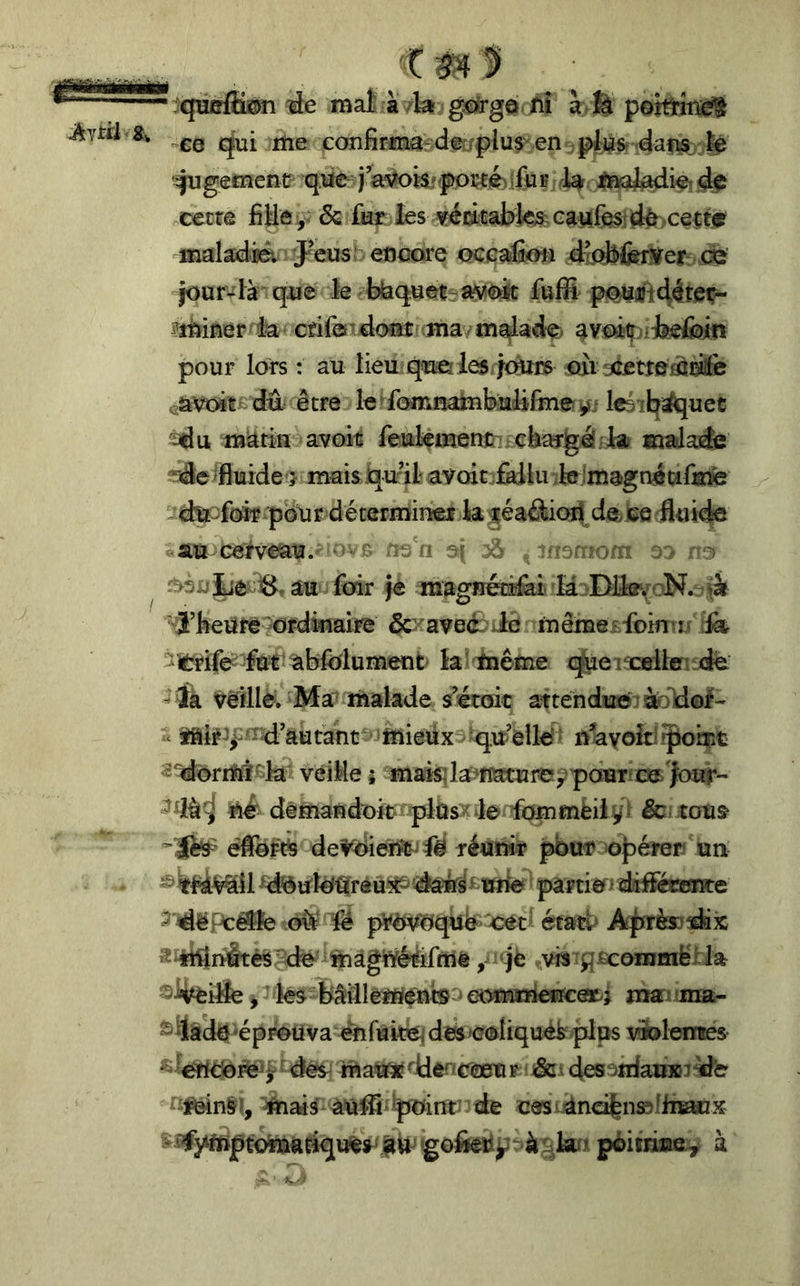 ( 34 )
Avril 8.
question de mal à la gorge ni à la poitrine;
ce qui me confirma de plus en plus dans le
jugement que j'avois porté sur la maladie de
cette fille, & sur les véritables causes de cette
maladie. J'eus encore occasion d'observer ce
jour-là que le baquet avoit suffi pour déter-
miner la crise dont ma malade avoit besoin
pour lors : au lieu que les jours où cette crise
avoit dû être le somnambulisme, le baquet
du matin avoit seulement chargé la malade
de fluide; mais qu'il avoit fallu le magnétisme
du soir pour déterminer la réaction de ce fluide
au cerveau.
Le 8, au soir je magnétisai la Dlle. N. à
l'heure ordinaire & avec le même soin : sa
crise fut absolument la même que celle de
la veille. Ma malade s'étoit attendue à dor-
mir, d'autant mieux qu'elle n'avoit point
dormi la veille; mais la nature, pour ce jour-
là, ne demandoit plus le sommeil, & tous
ses efforts devoient se réunir pour opérer un
travail douloureux dans une partie différente
de celle où se provoque cet état. Après dix
minutes de magnétisme, je vis, comme la
veille, les bâillements commencer; ma ma-
lade éprouva ensuite des coliques plus violentes
encore, des maux de cœur & des maux de
reins, mais aussi point de ces anciens maux
symptomatiques au gosier, à la poitrine, à